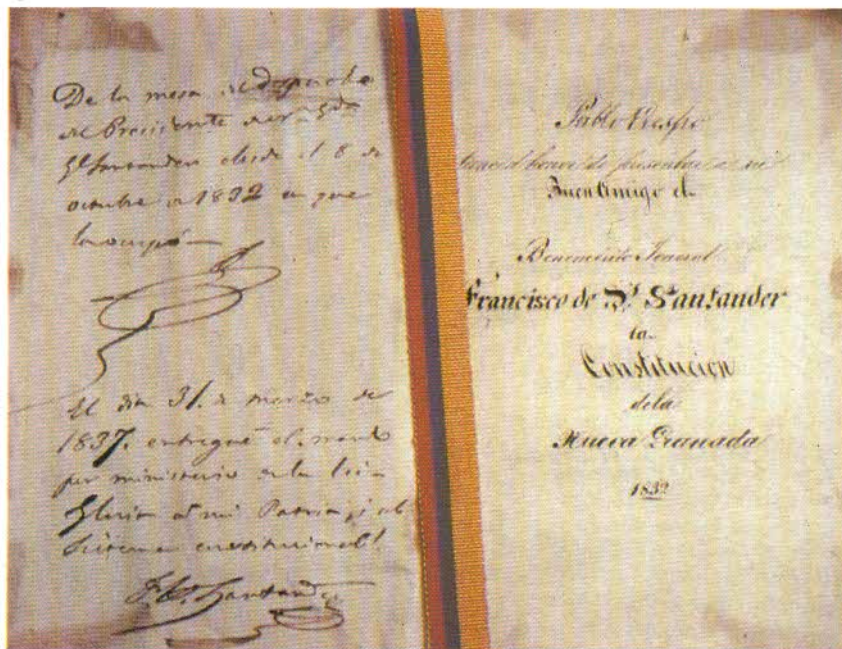 De la mesa del Despacho
del Presidente
Santander desde el 8 de
octubre de 1832 en que
la ocupó
El dia 31. de marzo de
1837. entregué el mando
por ministerio de la lei
Gloria á mi Patria, i al
Sistema constitucional!
F. de P. Santander
Pablo Crespo
tiene el honor de presentar a su
Buen Amigo el
Benemérito Jeneral
Francisco de P. Santander
la
Constitucion
de la
Nueva Granada
1832